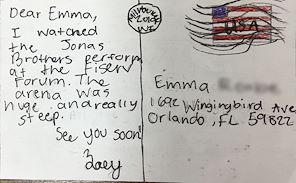 Dear Emma,
I watched
the Jonas
Brothers perform
at the Fiserv
Forum. The
arena was
huge and really
steep.
See you soon!
Zoey
USA
Emma
1692 Wingingbird Ave
Orlando, FL 59822